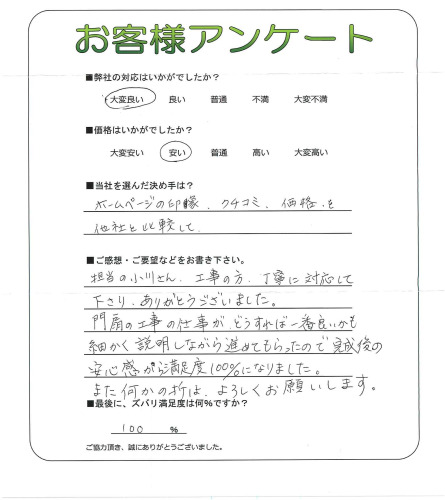 お客様アンケート
■弊社の対応はいかがでしたか?
大変良い 良い 普通 不満 大変不満
■価格はいかがでしたか?
大変安い 安い 普通 高い 大変高い
■当社を選んだ決め手は?
ホームページの印象、クチコミ、価格を
他社と比較して
■ご感想・ご要望などをお書き下さい。
担当の小川さん、工事の方、丁寧に対応して
下さり、ありがとうございました。
門扉の工事の仕事が、どうすれば一番良いかも
細かく説明しながら進めてもらったので完成後の
安心感から満足度100%になりました。
また何かの折は、よろしくお願いします。
■最後に、ズバリ満足度は何%ですか?
100 %
ご協力頂き、誠にありがとうございました。